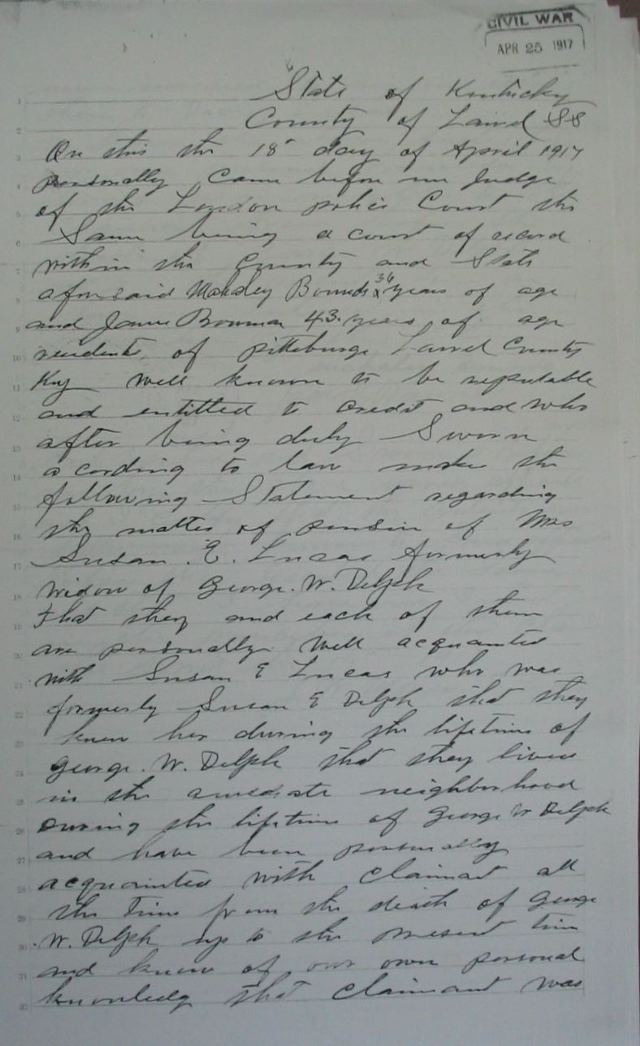 CIVIL WAR
APR 25 1917
State of Kentucky
County of Laurel SS
On this the 18" day of April 1917
personally came before me Judge
of the London police Court the
Same being a court of record
within the County and State
aforesaid Bounds 36 years of age
and James Bowman 43. years of age
residents of pittsburge Laurel County
Ky well known to be reputable
and entitled to credit and who
after being duly Sworn
acording to law make the
following Statement regarding
the matter of pension of Mrs
Susan. E. Lucas formerly
widow of George. W. Delph
that they and each of them
are personally well acquanted
with Susan E Lucas who was
formerly Susan E Delph that they
knew her during the lifetime of
George. W. Delph that they lived
in the neighborhood
During the lifetime of George W Delph
and have been personally
acquainted with claimant all
the time from the death of George
W. Delph up to the present time
and know of our own personal
knowledg that claimant was